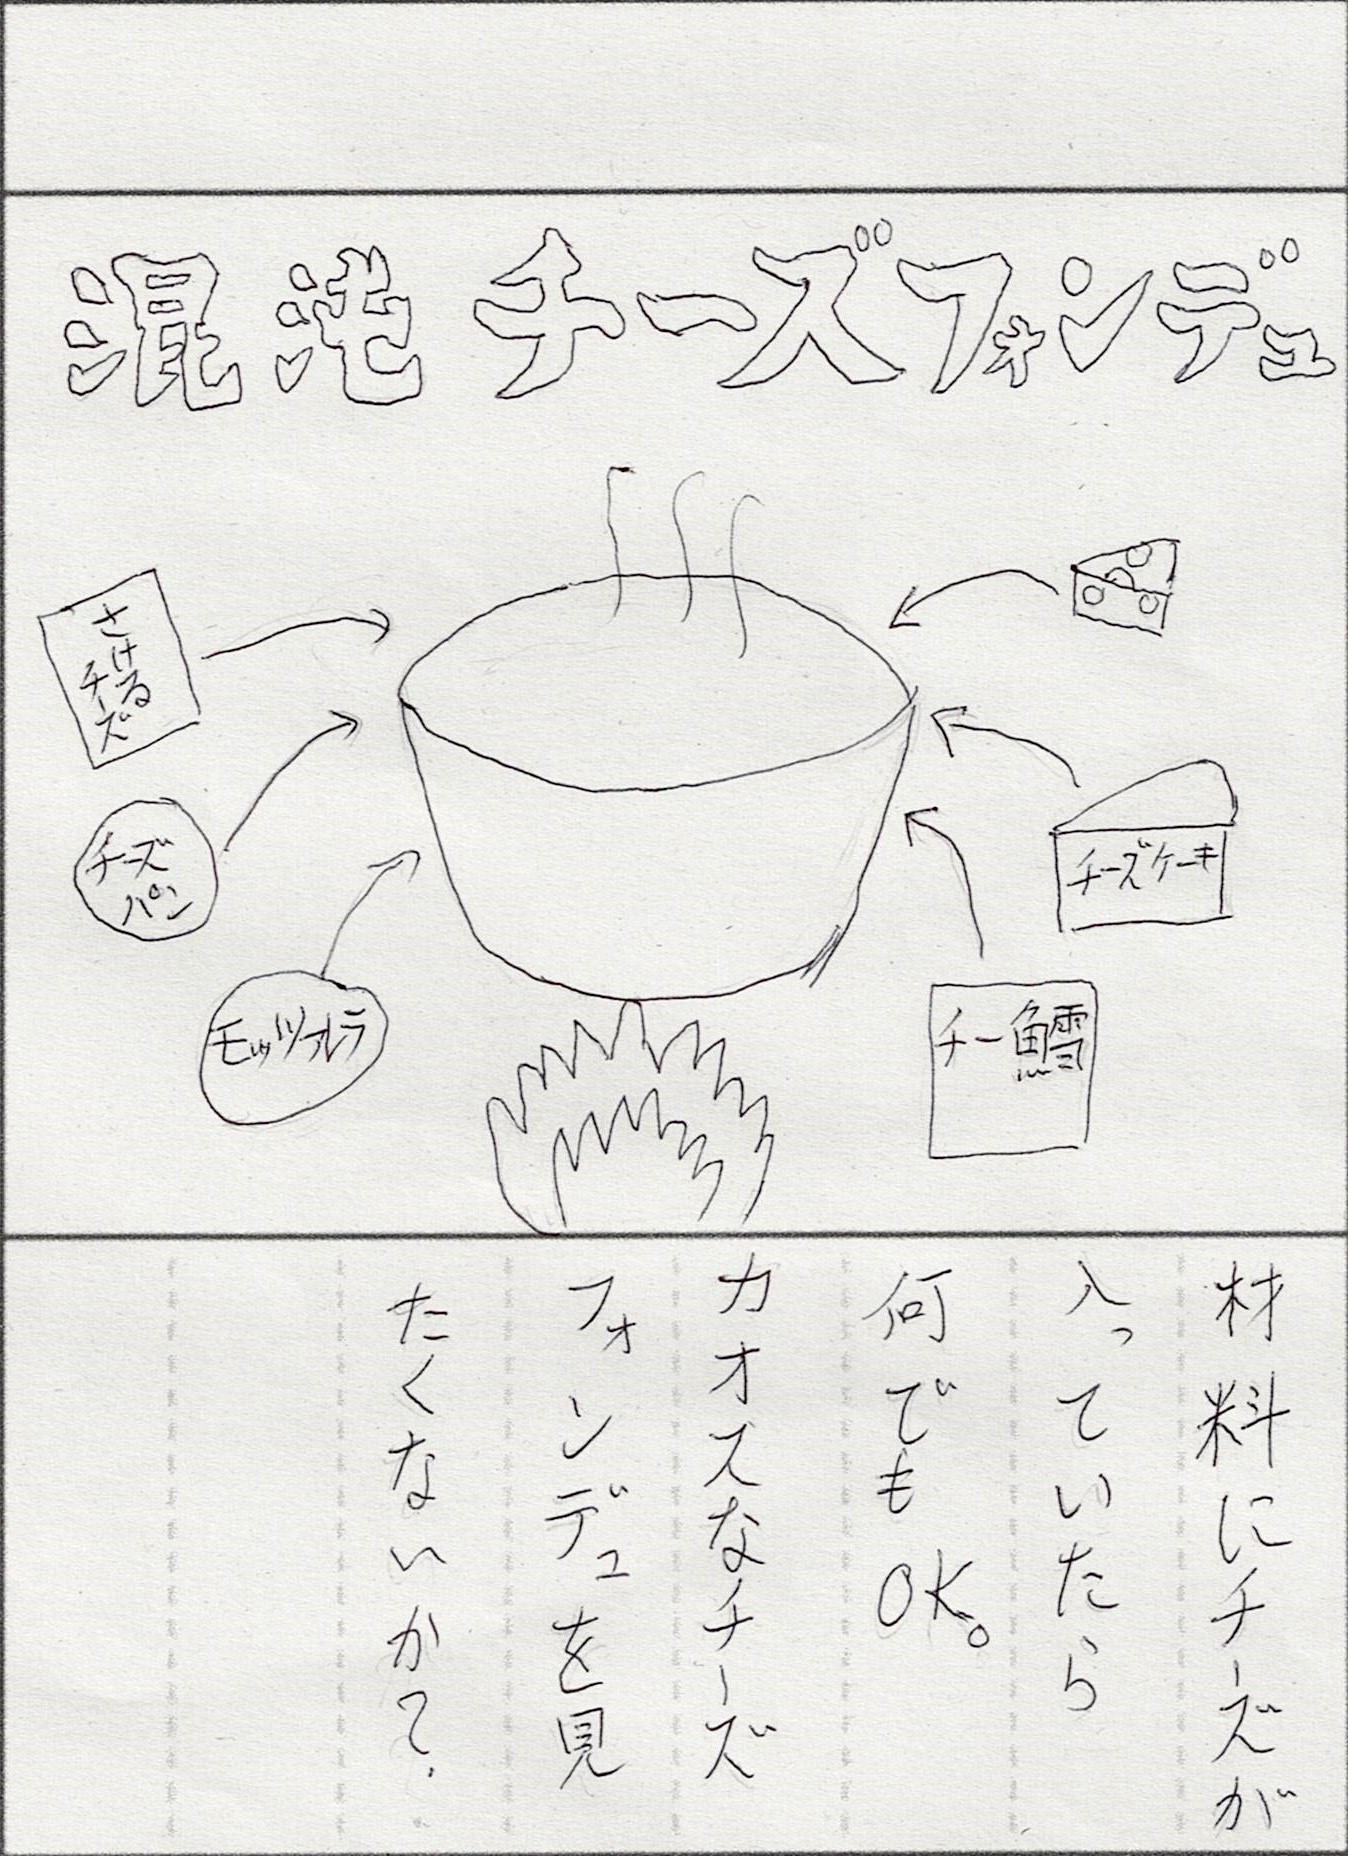 混沌チーズフォンデュ
さける
チーズ
チーズ
パン
モッツァレラ
チーズケーキ
チー鱈
材料にチーズが
入っていたら
何でもOK。
カオスなチーズ
フォンデュを見
たくないかて?